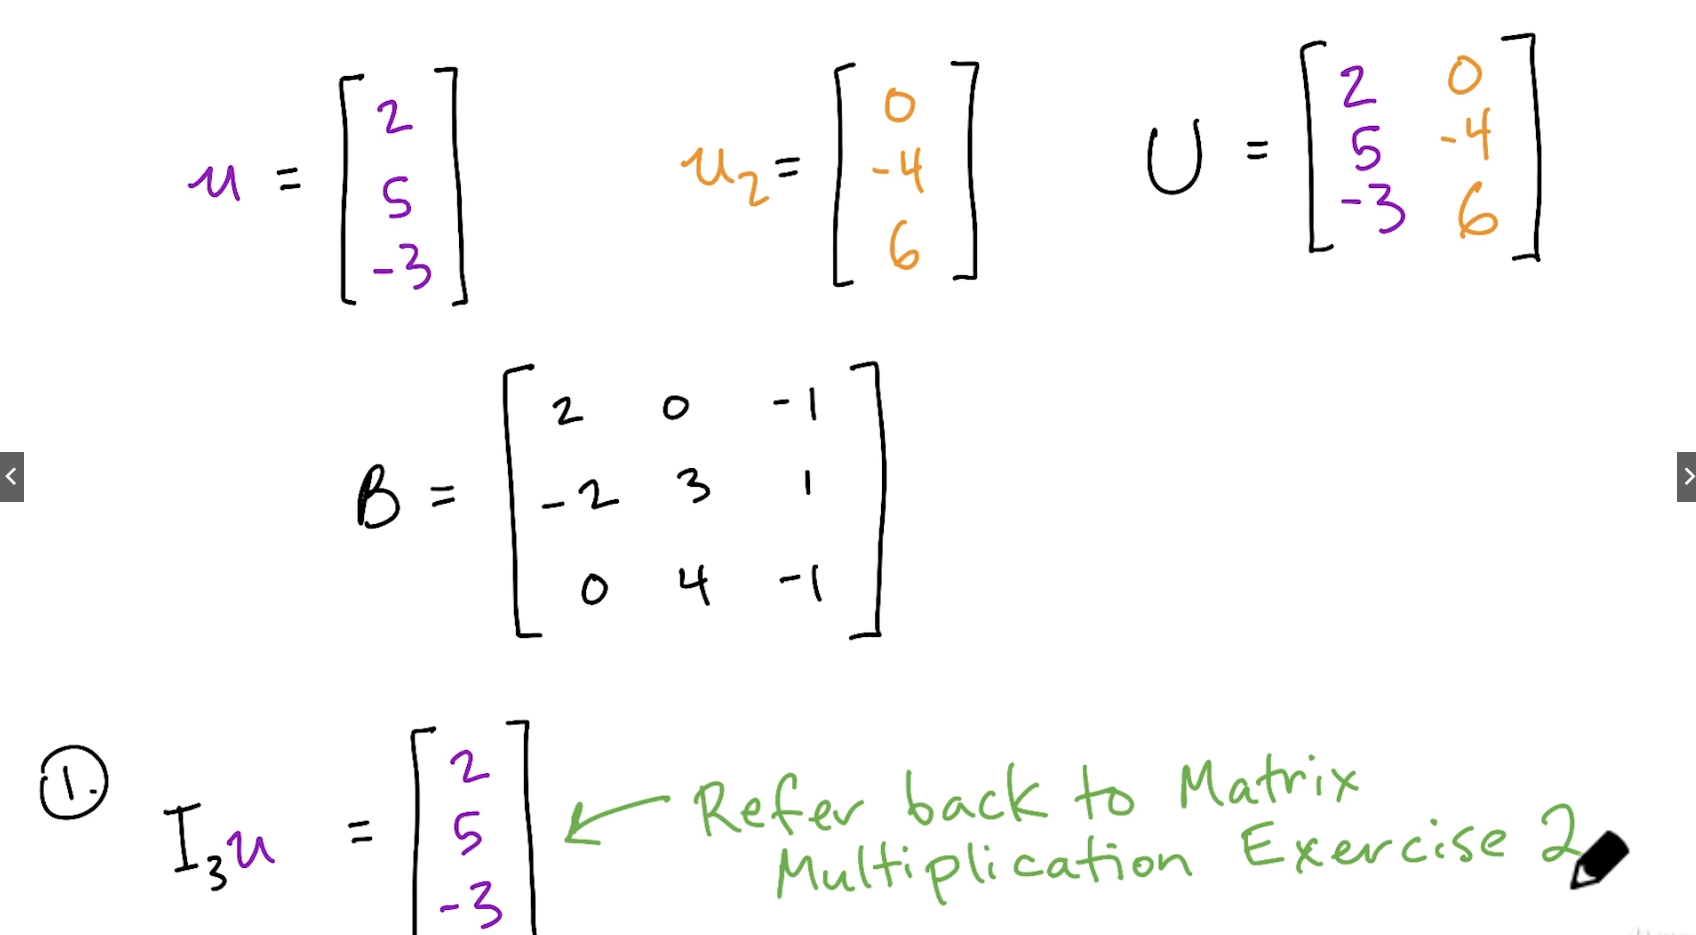 u = [2 5 -3] u₂ = [0 -4 6] U = [2 0 5 -4 -3 6]
B = [2 0 -1
-2 3 1
0 4 -1]
1. I₃u = [2 5 -3] ← Refer back to Matrix
Multiplication Exercise 2